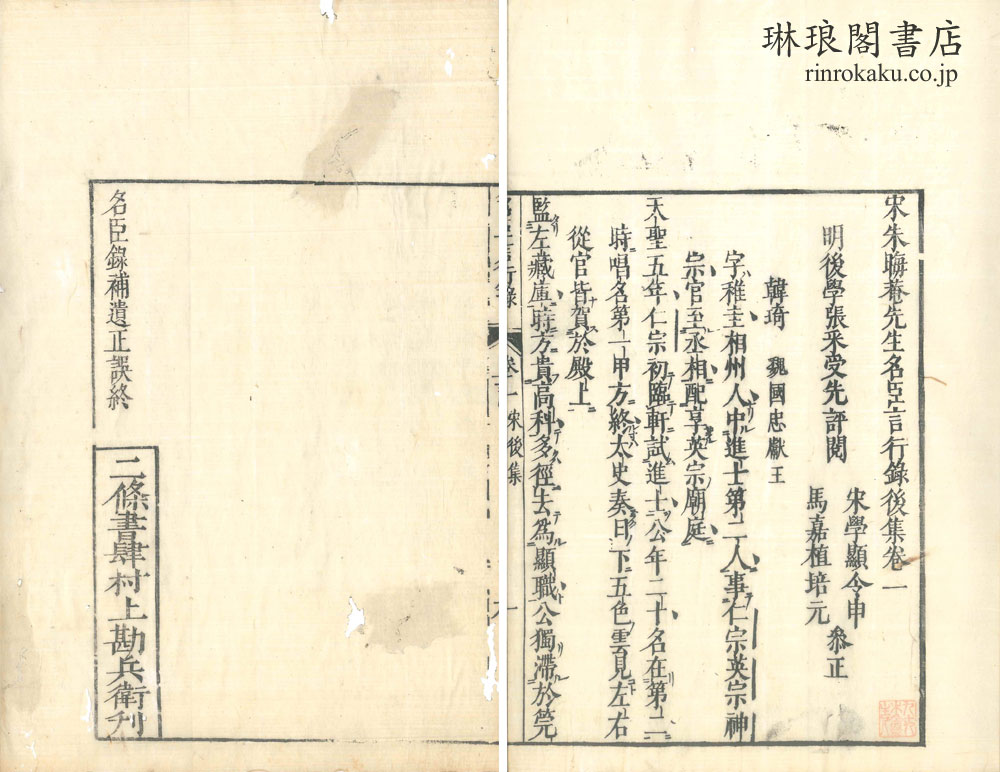 琳琅閣書店
rinrokaku.co.jp
宋朱晦菴先生名臣言行錄後集卷一
明後學張采受先評閱
宋學顯令申
馬嘉植培元
叅正
韓琦 魏國忠獻王
字稚圭相州人中進士第二人事仁宗英宗神
宗官至丞相配享英宗廟庭
天聖五年仁宗初臨軒試進士公年二十名在第二
時唱名第一甲方終太史奏日下五色雲見左右
從官皆賀於殿上
監左藏庫時方貴高科多徑去為顯職公獨滯於筦
卷一 宋後集
名臣錄補遺正誤終
二條書肆村上勘兵衛刋